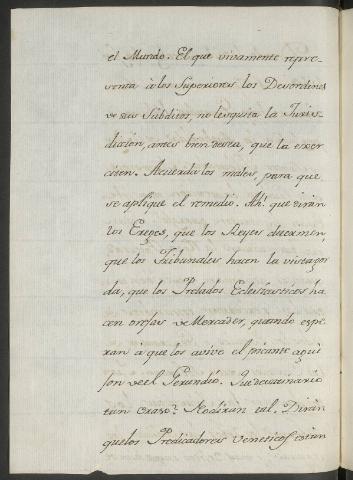 el Mundo. El que vivamente repre-
senta à los Superiores los Desordenes
de sus Subditos, no les quita la Juris-
dicion, antes bien desea, que la exer-
citen. Acuerda los males, para que
se aplique el remedio. Ah! que dirán
los Ereges, que los Reyes duermen,
que los Tribunales hacen la vista gor
da, que los Prelados Eclesiasticos ha
cen orejas de Mercader, quando espe-
ran à que los avive el picante agui
jon de el Gerundio. Que
tan craso? No diran tal. Dirán
que los Predicadores